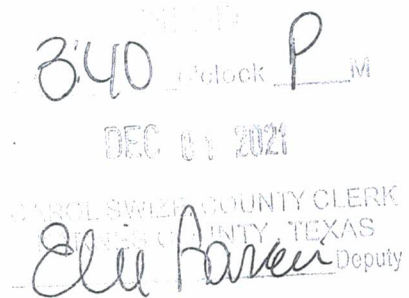 3:40 o'clock P M
DEC 01 2021
CAROL SWIZE, COUNTY CLERK
COUNTY, TEXAS
Deputy